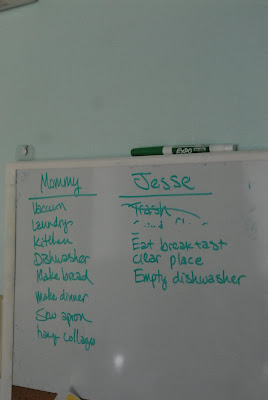 EXPO
Mommy
Vacuum
Laundry
Kitchen
Dishwasher
Make bread
Make dinner
Sew apron
hang collages
Jesse
Trash
Eat breakfast
clear place
Empty dishwasher